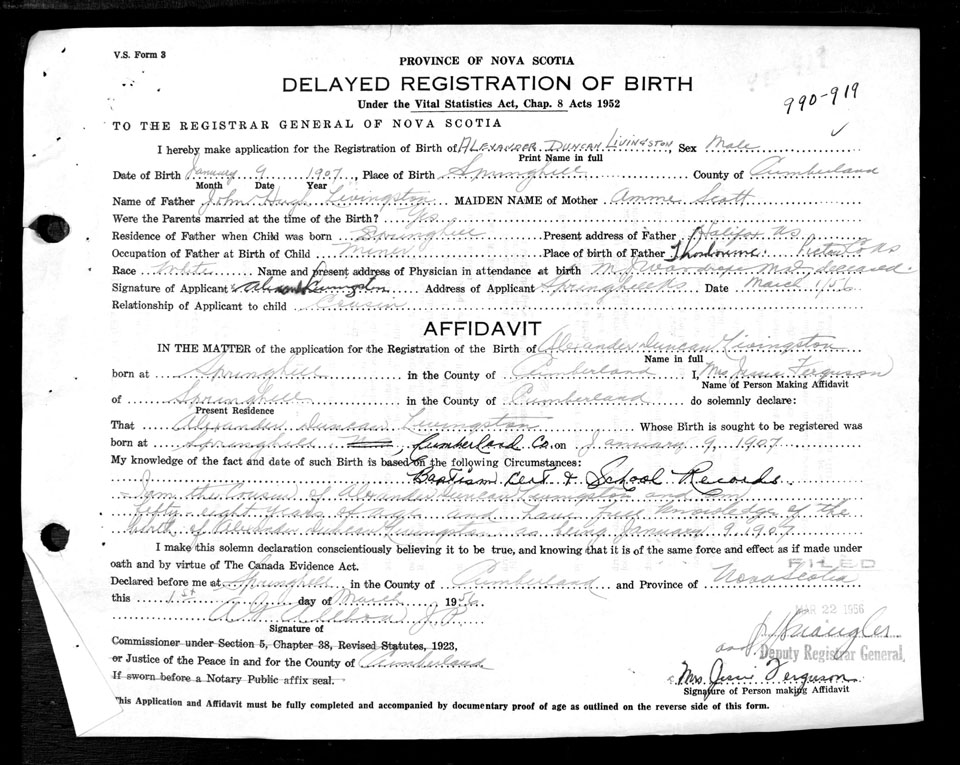 V.S. Form 3
PROVINCE OF NOVA SCOTIA
DELAYED REGISTRATION OF BIRTH
Under the Vital Statistics Act, Chap. 8 Acts 1952
990-919
TO THE REGISTRAR GENERAL OF NOVA SCOTIA
I hereby make application for the Registration of Birth of ALEXANDER DUNCAN LIVINGSTON, Sex Male
Print Name in full
Date of Birth January 9 1907, Place of Birth Springhill County of Cumberland
Month Date Year
Name of Father John Hugh Livingston MAIDEN NAME of Mother Annie Scott
Were the Parents married at the time of the Birth? Yes.
Residence of Father when Child was born Springhill Present address of Father Halifax NS
Occupation of Father at Birth of Child Miner Place of birth of Father Pictou Co NS
Race White Name and present address of Physician in attendance at birth deceased.
Signature of Applicant Livingston Address of Applicant Springhill NS Date March 1/56
Relationship of Applicant to child Cousin
AFFIDAVIT
IN THE MATTER of the application for the Registration of the Birth of Alexander Duncan Livingston
Name in full
born at Springhill in the County of Cumberland I, Mrs Jessie Ferguson
Name of Person Making Affidavit
of Springhill in the County of Cumberland do solemnly declare:
Present Residence
That Alexander Duncan Livingston Whose Birth is sought to be registered was
born at Springhill Cumberland Co. on January 9, 1907
My knowledge of the fact and date of such Birth is based on the following Circumstances:
Baptism Cert & School Records.
I am the Cousin of Alexander Duncan Livingston and am
fifty-eight years of age and have full knowledge of the
birth of Alexander Duncan Livingston as being January 9, 1907
I make this solemn declaration conscientiously believing it to be true, and knowing that it is of the same force and effect as if made under
oath and by virtue of The Canada Evidence Act.
FILED
Declared before me at Springhill in the County of Cumberland and Province of Nova Scotia
this 1st day of March 1956
MAR 22 1956
A J.P.
Signature of
Commissioner under Section 5, Chapter 38, Revised Statutes, 1923,
Deputy Registrar General,
or Justice of the Peace in and for the County of Cumberland
If sworn before a Notary Public affix seal.
Mrs. Jessie Ferguson
Signature of Person making Affidavit
This Application and Affidavit must be fully completed and accompanied by documentary proof of age as outlined on the reverse side of this form.